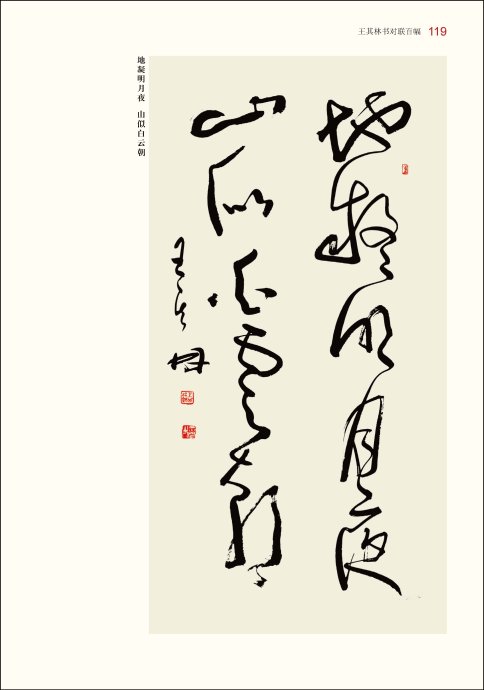 王其林书对联百幅 119
地凝明月夜 山似白云朝
地凝明月夜
山似白云朝
王其林